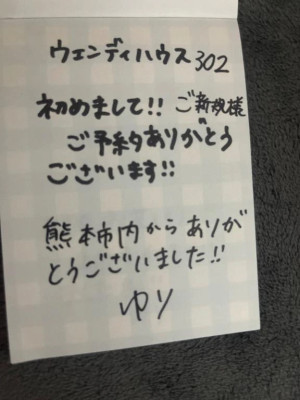 ウェンディハウス 302
初めまして!! ご新規様
ご予約ありがとう
ございます!!
熊本市内からありが
とうございました!!
ゆり